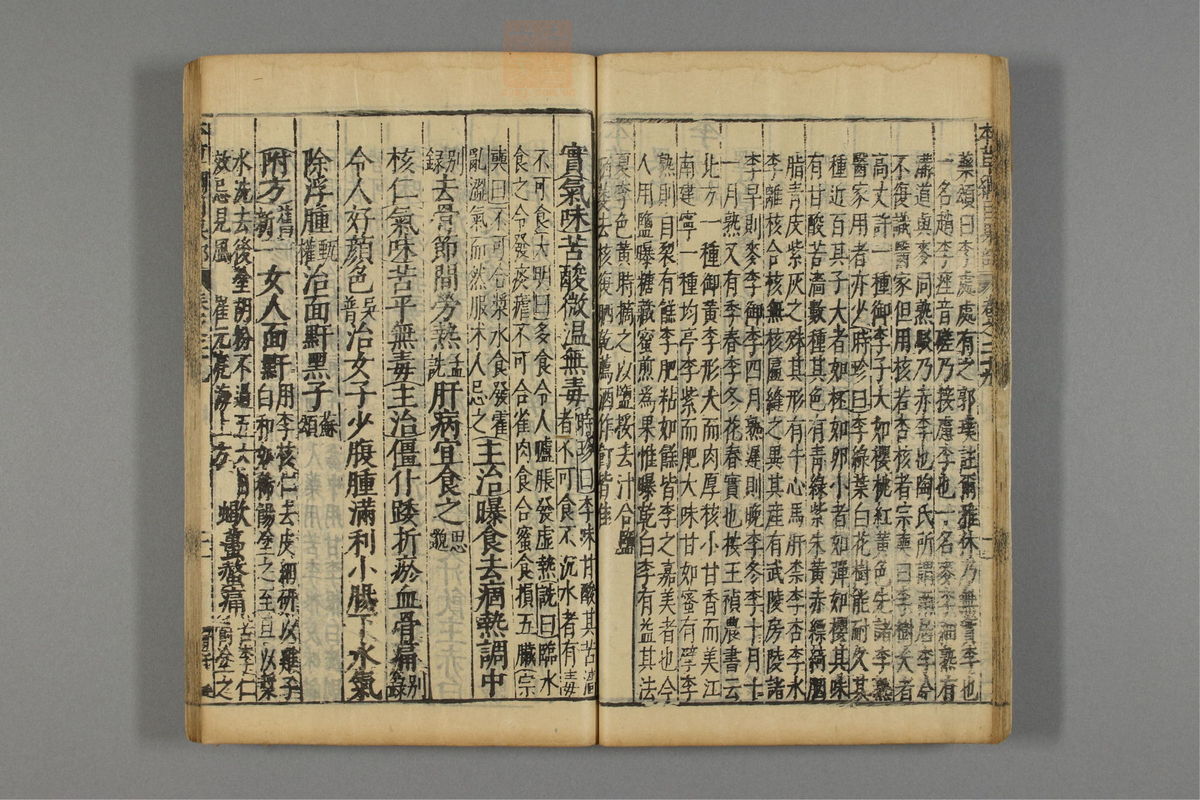 藥頌曰李處處有之郭璞註爾雅休乃無實李也
一名趙李痤音磋乃接慮李也一名麥李細熟有
溝道與麥同熟駮乃赤李也陶氏所謂南居李今
不復識醫家但用核若杏核者宗奭曰李樹大者
高丈許一種御李子大如櫻桃紅黃色先諸李熟
醫家用者亦少時珍曰李綠葉白花樹能耐久其
種近百其子大者如杯如卵小者如彈如櫻其味
有甘酸苦濇數種其色有青綠紫朱黃赤縹綺胭
脂青皮紫灰之殊其形有牛心馬肝柰李杏李水
李離核合核無核匾縫之異其産有武陵房陵諸
李早則麥李御李四月熟遲則晚李冬李十月十
一月熟又有季春李冬花春實也按王禎農書云
北方一種御黃李形大而肉厚核小甘香而美江
南建寧一種均亭李紫而肥大味甘如蜜有擘李
熟則自裂有餻李肥粘如餻皆李之嘉美者也今
人用鹽曝糖藏蜜煎爲果惟曝乾白李有益其法
夏李色黃時摘之以鹽挼去汁合鹽
去核復晒乾薦酒作飣皆佳
實氣味苦酸微温無毒時珍曰李味甘酸其苦濇
者不可食不沉水者有毒
不可食大明曰多食令人臚脹發虛熱詵曰臨水
食之令發痰瘧不可合雀肉食合蜜食損五臟宗
奭曰不可合漿水食發霍
亂濇氣而然服朮人忌之主治曝食去痼熱調中
別錄去骨節間勞熱孟詵肝病宜食之思邈
核仁氣味苦平無毒主治僵仆踒折瘀血骨痛別錄
令人好顏色吳普治女子少腹腫滿利小腸下水氣
除浮腫甄權治面䵟黑子蘇頌
附方新一女人面䵟用李核仁去皮細研以雞子
白和如稀餳塗之至旦以漿
水洗去後塗胡粉不過五六日
效忌見風崔元亮海上方蠍蠆螫痛苦李仁
塗之